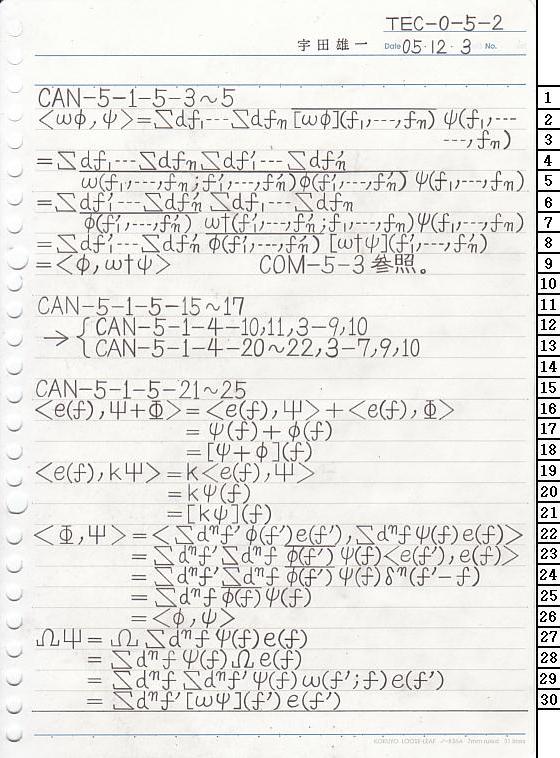 TEC-0-5-2
宇田雄一 Date 05・12・3 No.
CAN-5-1-5-3~5
<ωϕ,ψ>=∑df₁…∑dfₙ[ωϕ](f₁,…,fₙ) ψ(f₁,
…,fₙ)
=∑df₁…∑dfₙ∑df₁′…∑dfₙ′
ω(f₁,…,fₙ;f₁′,…,fₙ′)ϕ(f₁′,…,fₙ′) ψ(f₁,…,fₙ)
=∑df₁′…∑dfₙ′ ∑df₁…∑dfₙ
ϕ(f₁′,…,fₙ′) ω†(f₁′,…,fₙ′;f₁,…,fₙ)ψ(f₁,…,fₙ)
=∑df₁′…∑dfₙ′ ϕ(f₁′,…,fₙ′) [ω†ψ](f₁′,…,fₙ′)
=<ϕ,ω†ψ> COM-5-3参照。
CAN-5-1-5-15~17
→{CAN-5-1-4-10,11,3-9,10
CAN-5-1-4-20~22,3-7,9,10
CAN-5-1-5-21~25
<e(f),Ψ+Φ>=<e(f),Ψ>+<e(f),Φ>
=ψ(f)+ϕ(f)
=[ψ+ϕ](f)
<e(f),kΨ>=k<e(f),Ψ>
=kψ(f)
=[kψ](f)
<Φ,Ψ>=<∑dⁿf′ϕ(f′)e(f′),∑dⁿfψ(f)e(f)>
=∑dⁿf′∑dⁿf ϕ(f′) ψ(f)<e(f′),e(f)>
=∑dⁿf′∑dⁿf ϕ(f′) ψ(f)δⁿ(f′-f)
=∑dⁿf ϕ(f) ψ(f)
=<ϕ,ψ>
ΩΨ=Ω∑dⁿf ψ(f)e(f)
=∑dⁿf ψ(f)Ωe(f)
=∑dⁿf ∑dⁿf′ψ(f)ω(f′;f)e(f′)
=∑dⁿf′[ωψ](f′)e(f′)
1
2
3
4
5
6
7
8
9
10
11
12
13
14
15
16
17
18
19
20
21
22
23
24
25
26
27
28
29
30
KOKUYO LOOSE-LEAF ノ-836A 7mm ruled 31 lines